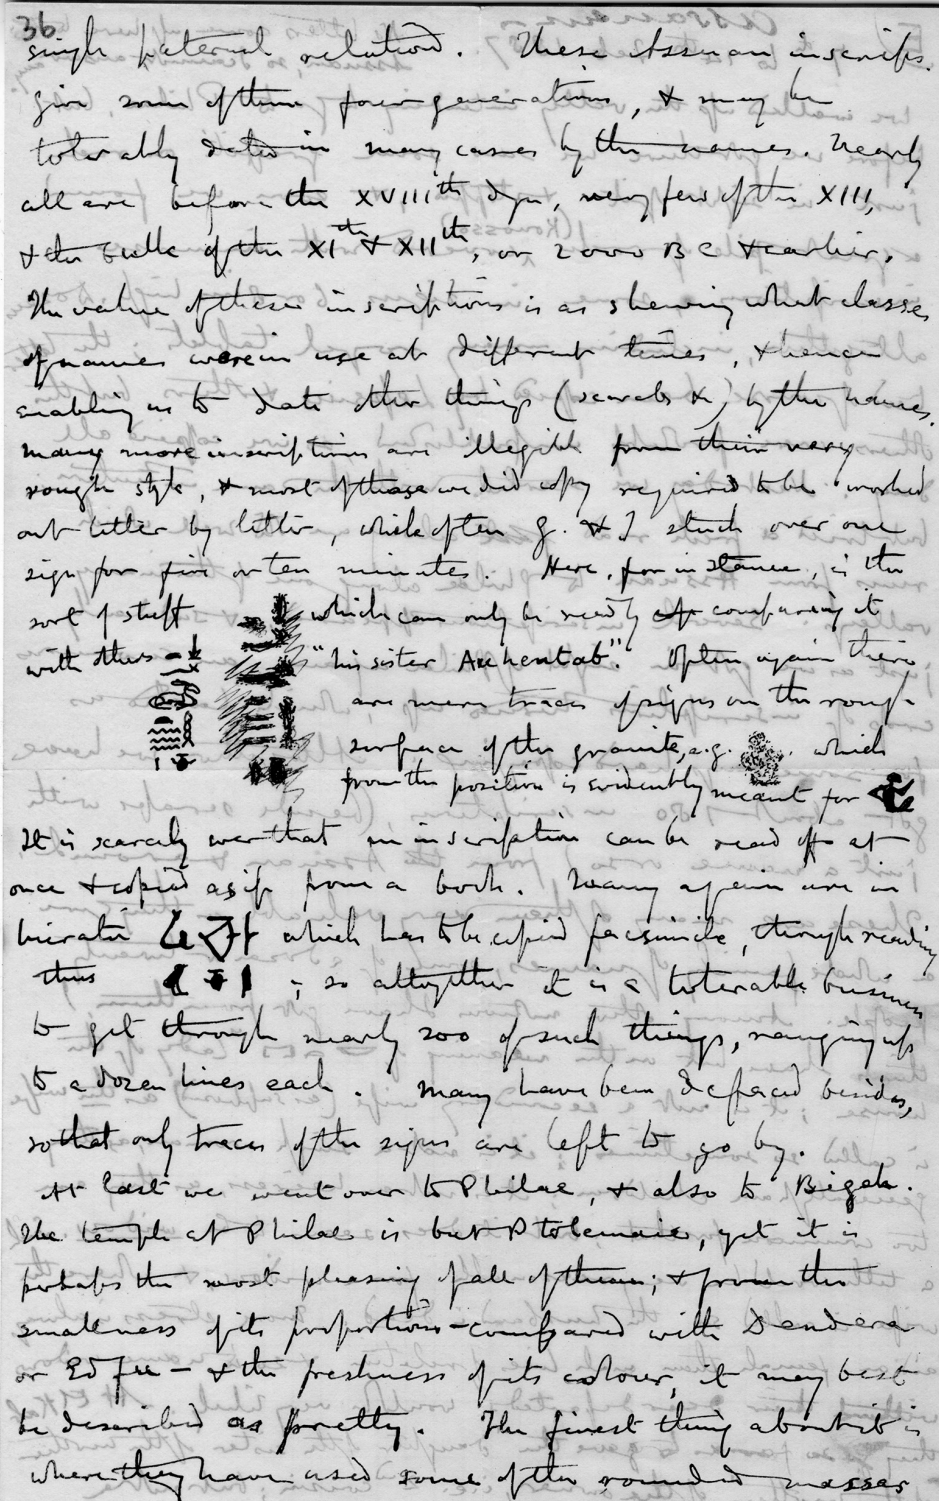 36
single paternal relation. These Assuan inscrips.
give some of them four generations, & may be
tolerably dated in many cases by the names. Nearly
all are before the XVIIIth dyn, very few of the XIII,
& the bulk of the XIth & XIIth, or 2000 BC & earlier.
The value of these inscriptions is as shewing what classes
of names were in use at different times, & hence
enabling us to date other things (scarabs &c) by the names.
Many more inscriptions are illegible from their very
rough style, & most of those we did copy required to be worked
out letter by letter, while often G. & I stuck over one
sign for five or ten minutes. Here, for instance, is the
sort of stuff which can only be read by comparing it
with others "his sister Ankentab". Often again there
are mere traces of signs on the rough
surface of the granite, e.g. which
from the position is evidently meant for
It is scarcely ever that an inscription can be read off at
once & copied as if from a book. Many again are in
hieratic which has to be copied facsimile, though reading
thus ; so altogether it is a tolerable business
to get through nearly 200 of such things, ranging up
to a dozen lines each. Many have been defaced besides,
so that only traces of the signs are left to go by.
At last we went over to Philae, & also to Bigeh.
The temple at Philae is but Ptolemaic, yet it is
perhaps the most pleasing of all of them; & from the
smallness of its proportions – compared with Dendera
or Edfu – & the freshness of its colour, it may best
be described as pretty. The finest thing about it is
where they have used some of the rounded masses